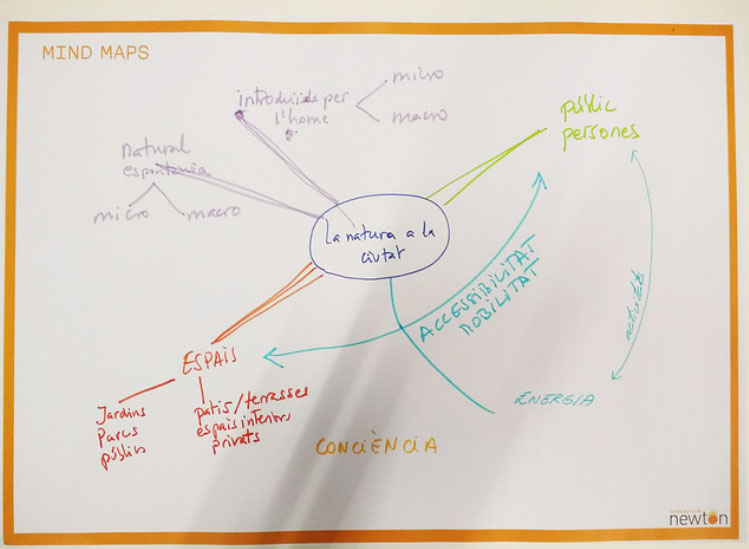 MIND MAPS
introduida per
l'home
micro
macro
públic
persones
natural
espontania
micro
macro
La natura a la
ciutat
ACCESSIBILITAT
MOBILITAT
activitats
ESPAIS
Jardins
Parcs
públics
patis/terrasses
espais interiors
privats
ENERGIA
CONCIÈNCIA
newton